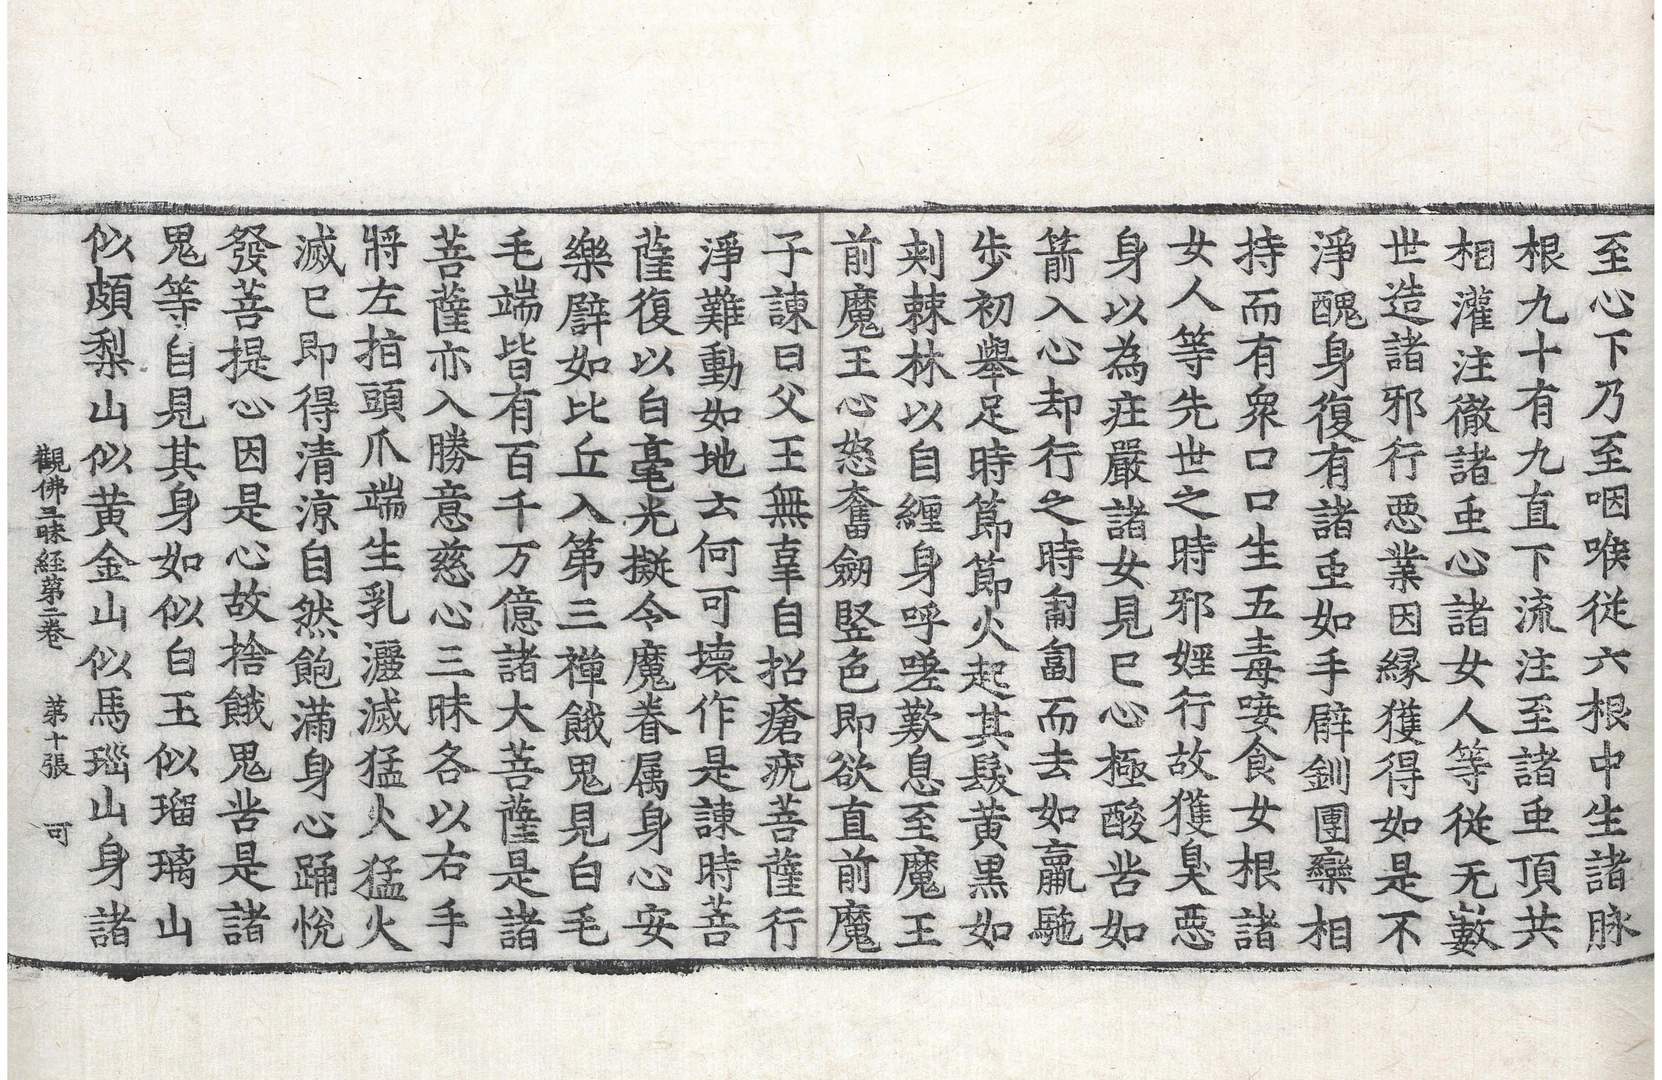 至心下乃至咽喉従六根中生諸脉
根九十有九直下流注至諸䖝頂共
相灌注徹諸䖝心諸女人等従无藪
世造諸邪行惡業因縁獲得如是不
淨醜身復有諸䖝如手臂釧團欒相
持而有衆口口生五毒唼食女根諸
女人等先世之時邪婬行故獲臭惡
身以為庄嚴諸女見已心極酸苦如
箭入心却行之時匍匐而去如羸駞
步初舉足時節節火起其髮黄黒如
刾棘林以自纏身呼嗟歎息至魔王
前魔王心怒奮劒竪色即欲直前魔
子諫曰父王無辜自招瘡疣菩薩行
淨難動如地云何可壊作是諫時菩
薩復以白毫光擬令魔眷属身心安
樂譬如比丘入第三禪餓鬼見白毛
毛端皆有百千万億諸大菩薩是諸
菩薩亦入勝意慈心三昧各以右手
將左指頭爪端生乳灑滅猛火猛火
滅已即得清涼自然飽滿身心踊悅
發菩提心因是心故捨餓鬼苦是諸
鬼等自見其身如似白玉似瑠璃山
似頗梨山似黄金山似馬瑙山身諸
觀佛三昧経第二卷 第十張 可